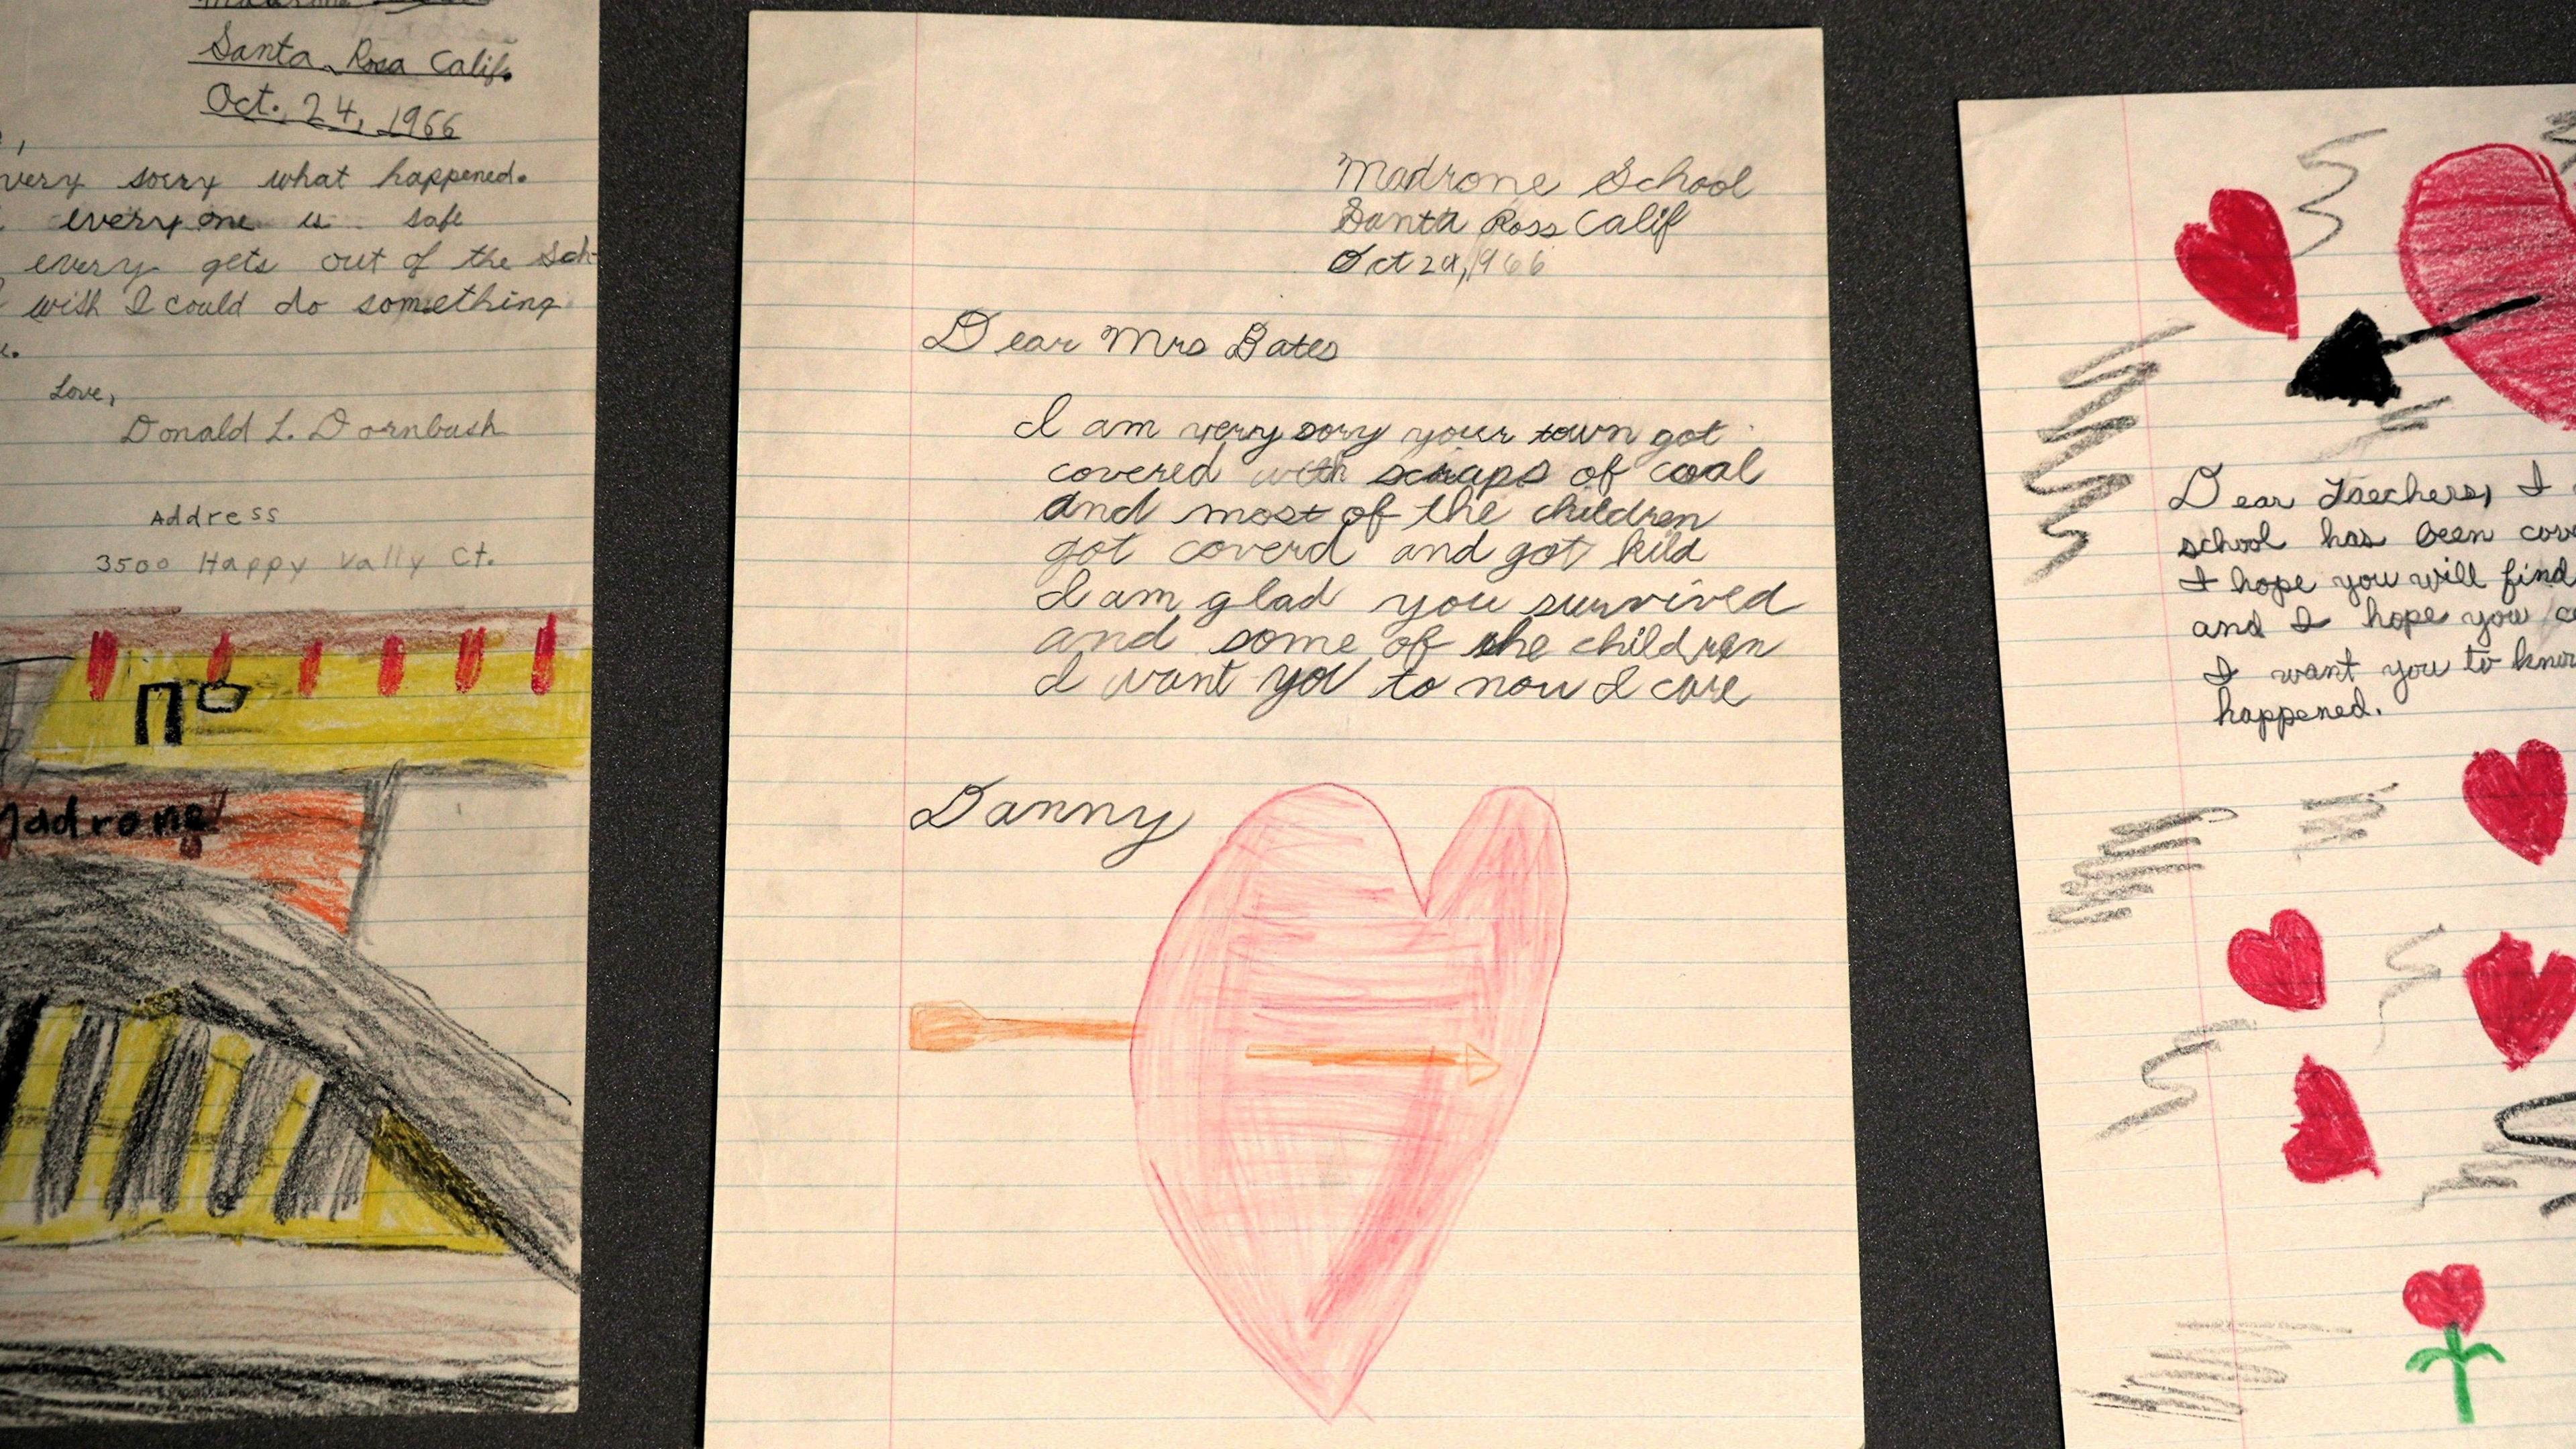 Santa Rosa Calif.
Oct. 24, 1966
very sorry what happened.
everyone is safe
every gets out of the Sch-
wish I could do something
Love,
Donald L. Dornbush
Address
3500 Happy Vally Ct.
Madrone
Madrone School
Santa Ross Calif
Oct 24, 1966
Dear Mrs Bates
I am very sory your town got
covered with scraps of coal
and most of the children
got coverd and got kild
I am glad you survived
and some of the children
I want you to now I care
Danny
Dear Teachers, I
school has been cov
I hope you will find
and I hope you
I want you to know
happened.